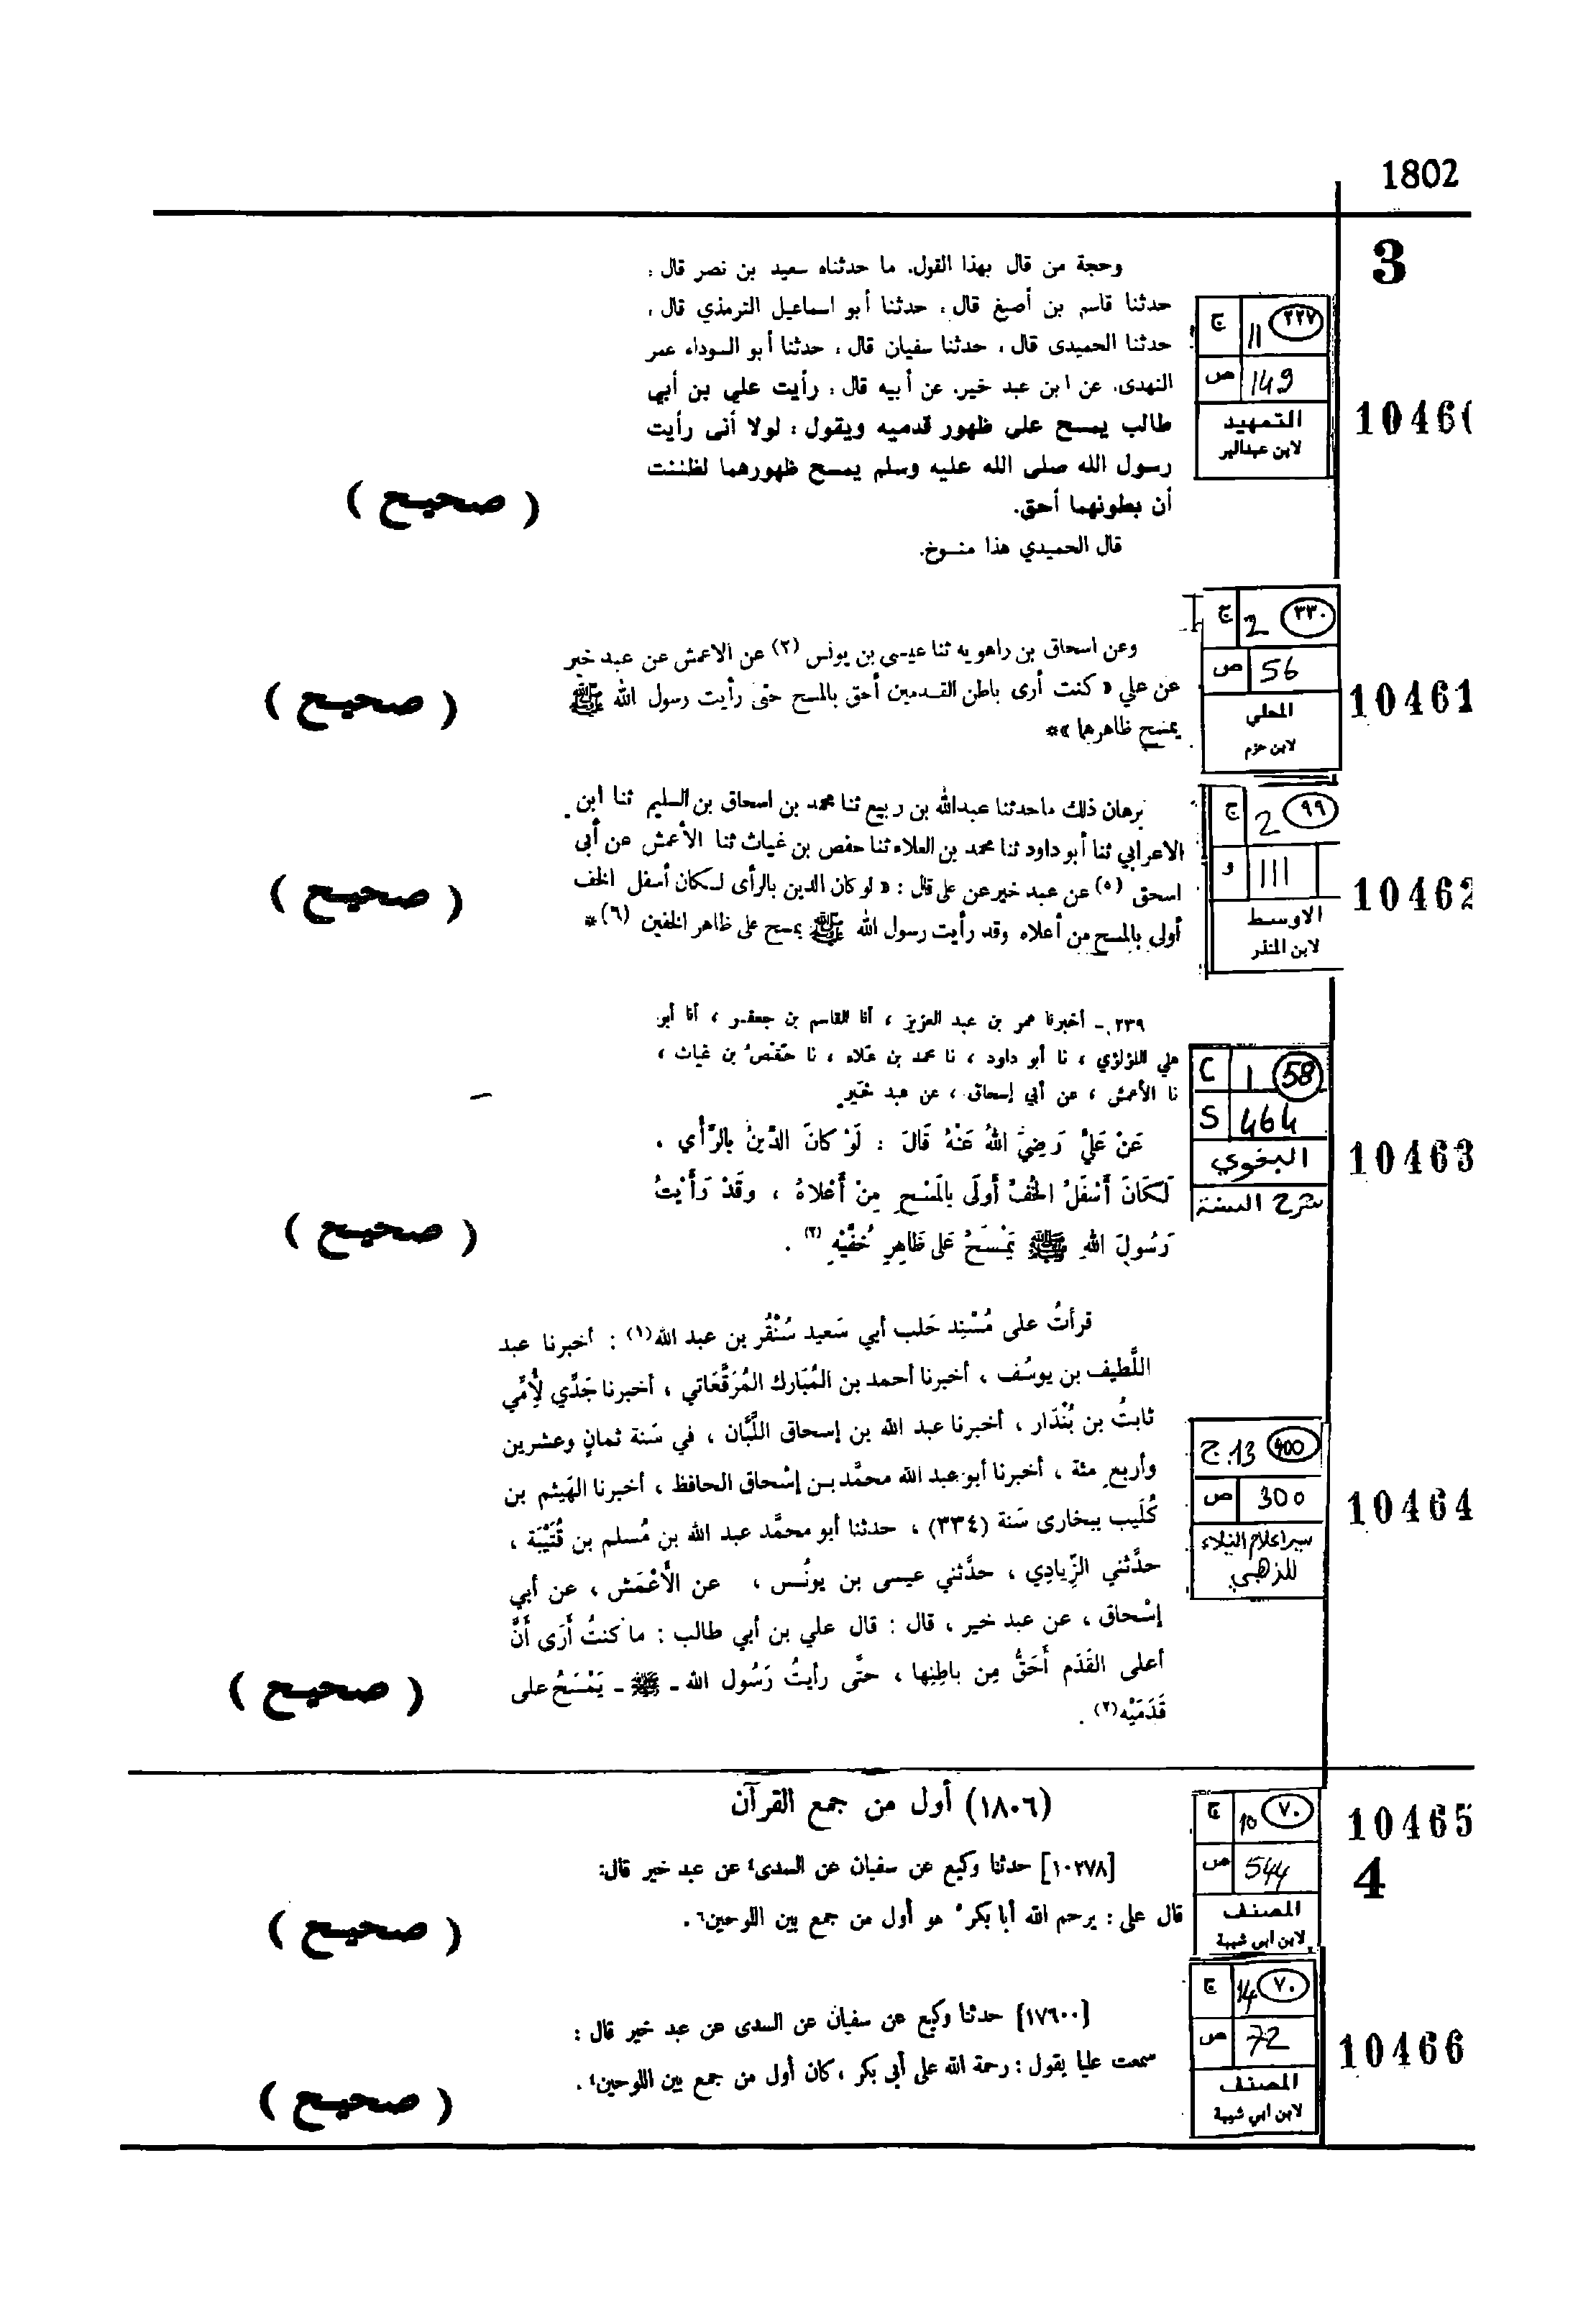 1802
3
وحجة من قال بهذا القول. ما حدثناه سعيد بن نصر قال :
حدثنا قاسم بن أصبغ قال ، حدثنا أبو اسماعيل الترمذي قال ،
حدثنا الحميدى قال ، حدثنا سفيان قال ، حدثنا أبو السوداء عمر
النهدى. عن ابن عبد خير. عن أبيه قال : رأيت علي بن أبي
طالب يمسح على ظهور قدميه ويقول : لولا أنى رأيت
رسول الله صلى الله عليه وسلم يمسح ظهورهما لظننت
أن بطونهما أحق.
قال الحميدي هذا منسوخ.
( صحيح )
ج 11 ٢٢٧
ص 149
التمهيد
لابن عبدالبر
1046
وعن اسحاق بن راهويه ثنا عيسى بن يونس (٢) عن الاعمش عن عبد خير
عن علي « كنت أرى باطن القدمين أحق بالمسح حتى رأيت رسول الله ﷺ
يمسح ظاهرهما »*
( صحيح )
ج 2 ٣٣٠
ص 56
المحلي
لابن حزم
10461
برهان ذلك ماحدثنا عبدالله بن ربيع ثنا محمد بن اسحاق بن السليم ثنا ابن
الاعرابي ثنا أبو داود ثنا محمد بن العلاء ثنا حفص بن غياث ثنا الأعمش عن أبى
اسحق (٥) عن عبد خير عن على قال : « لو كان الدين بالرأى لكان أسفل الخف
أولى بالمسح من أعلاه وقد رأيت رسول الله ﷺ يمسح على ظاهر الخفين (٦)*
( صحيح )
ج 2 ٩٩
و 111
الاوسط
لابن المنذر
10462
٢٣٩ ـ أخبرنا عمر بن عبد العزيز ، أنا القاسم بن جعفر ، أنا أبو
علي اللؤلؤي ، نا أبو داود ، نا محمد بن علاء ، نا حَفْصُ بن غياث ،
نا الأعمش ، عن أبي إسحاق ، عن عبد خَيرٍ
عَنْ عَلِيٍّ رَضِيَ اللهُ عَنْهُ قَالَ : لَوْ كانَ الدِّينُ بالرَّأي ،
لَكَانَ أَسْفَلُ الخُفِّ أَولَى بالمَسْحِ مِنْ أَعْلاهُ ، وقَدْ رَأَيْتُ
رَسُولَ اللهِ ﷺ يَمْسَحُ عَلى ظَاهِرِ خُفَّيْهِ (٣) .
( صحيح )
C 1 58
S 464
البغوي
شرح السنة
10463
قرأتُ على مُسْنِد حَلب أبي سَعيد سُنْقُر بن عبد الله(١) : أخبرنا عبد
اللَّطيف بن يوسُف ، أخبرنا أحمد بن المُبَارك المُرَقَّعَاتي ، أخبرنا جَدِّي لأُمِّي
ثابتُ بن بُنْدَار ، أخبرنا عبد الله بن إسحاق اللَّبَّان ، في سَنة ثمانٍ وعشرين
وأربع مئة ، أخبرنا أبو عبد الله محمَّد بن إسْحاق الحافظ ، أخبرنا الهَيثم بن
كُلَيب ببخارى سَنة (٣٣٤) ، حدثنا أبو محمَّد عبد الله بن مُسلم بن قُتَيْبَة ،
حدَّثني الزِّيادِي ، حدَّثني عيسى بن يونُس ، عن الأَعْمَش ، عن أبي
إسْحاق ، عن عبد خير ، قال : قال علي بن أبي طالب : ما كنتُ أَرَى أَنَّ
أعلى القَدَم أَحَقُّ مِن باطِنِها ، حتَّى رأيتُ رَسُول الله ـ ﷺ ـ يَمْسَحُ على
قَدَمَيْه(٢) .
( صحيح )
ج 13 400
ص 300
سير اعلام النبلاء
للذهبي
10464
(١٨٠٦) أول من جمع القرآن
[١٠٢٧٨] حدثنا وكيع عن سفيان عن السدى٤ عن عبد خير قال:
قال على : يرحم الله أبا بكر٥ هو أول من جمع بين اللوحين٦ .
( صحيح )
ج 10 ٧٠
ص 544
المصنف
لابن ابي شيبة
10465
4
[١٧٦٠٠] حدثنا وكيع عن سفيان عن السدى عن عبد خير قال :
سمعت عليا يقول : رحمة الله على أبي بكر ، كان أول من جمع بين اللوحين٤ .
( صحيح )
ج 14 ٧٠
ص 72
المصنف
لابن ابي شيبة
10466